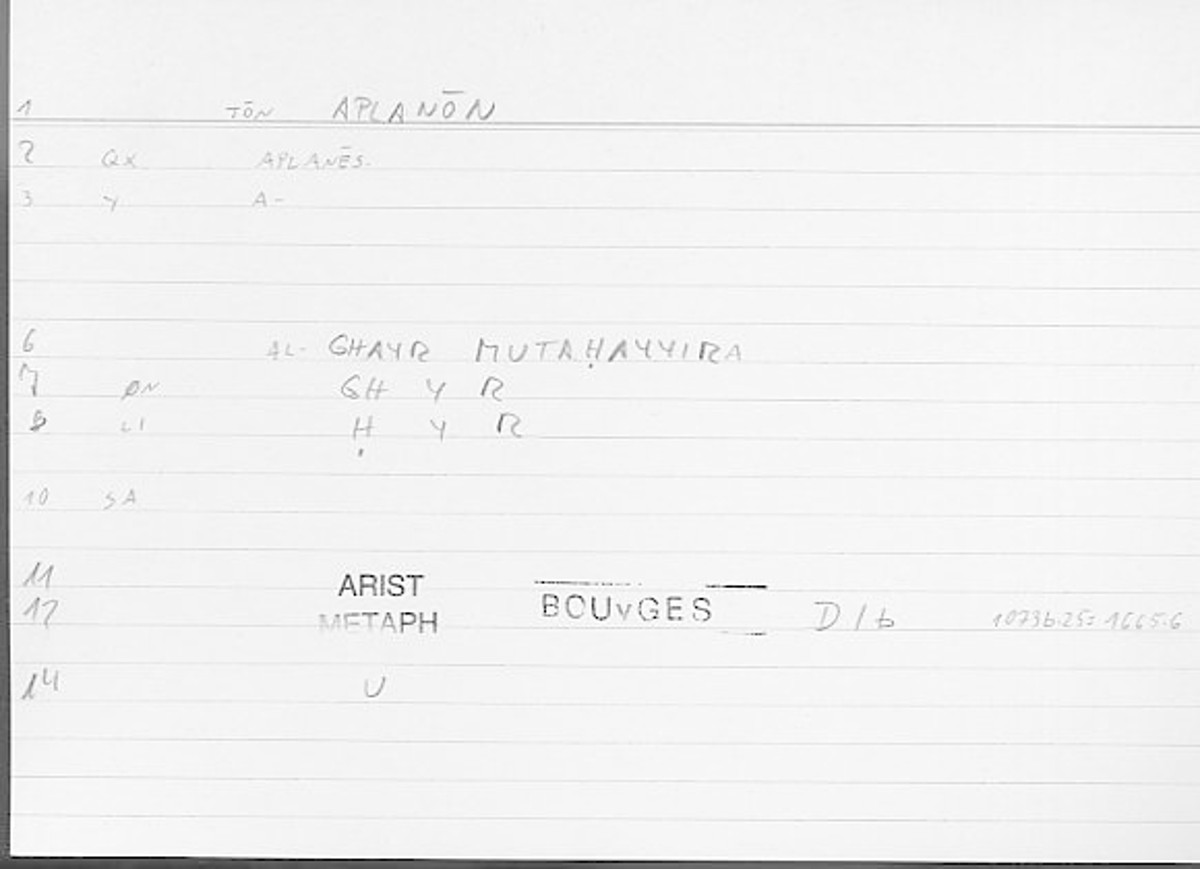 1 TŌN APLANŌN
2 QX APLANĒS.
3 Y A-
6 AL- GHAYR MUTAḤAYYIRA
7 ØN GH Y R
8 LI Ḥ Y R
10 SA
11 ARIST
12 METAPH BOUYGES D/b 1073b.25= 1665.6
14 U